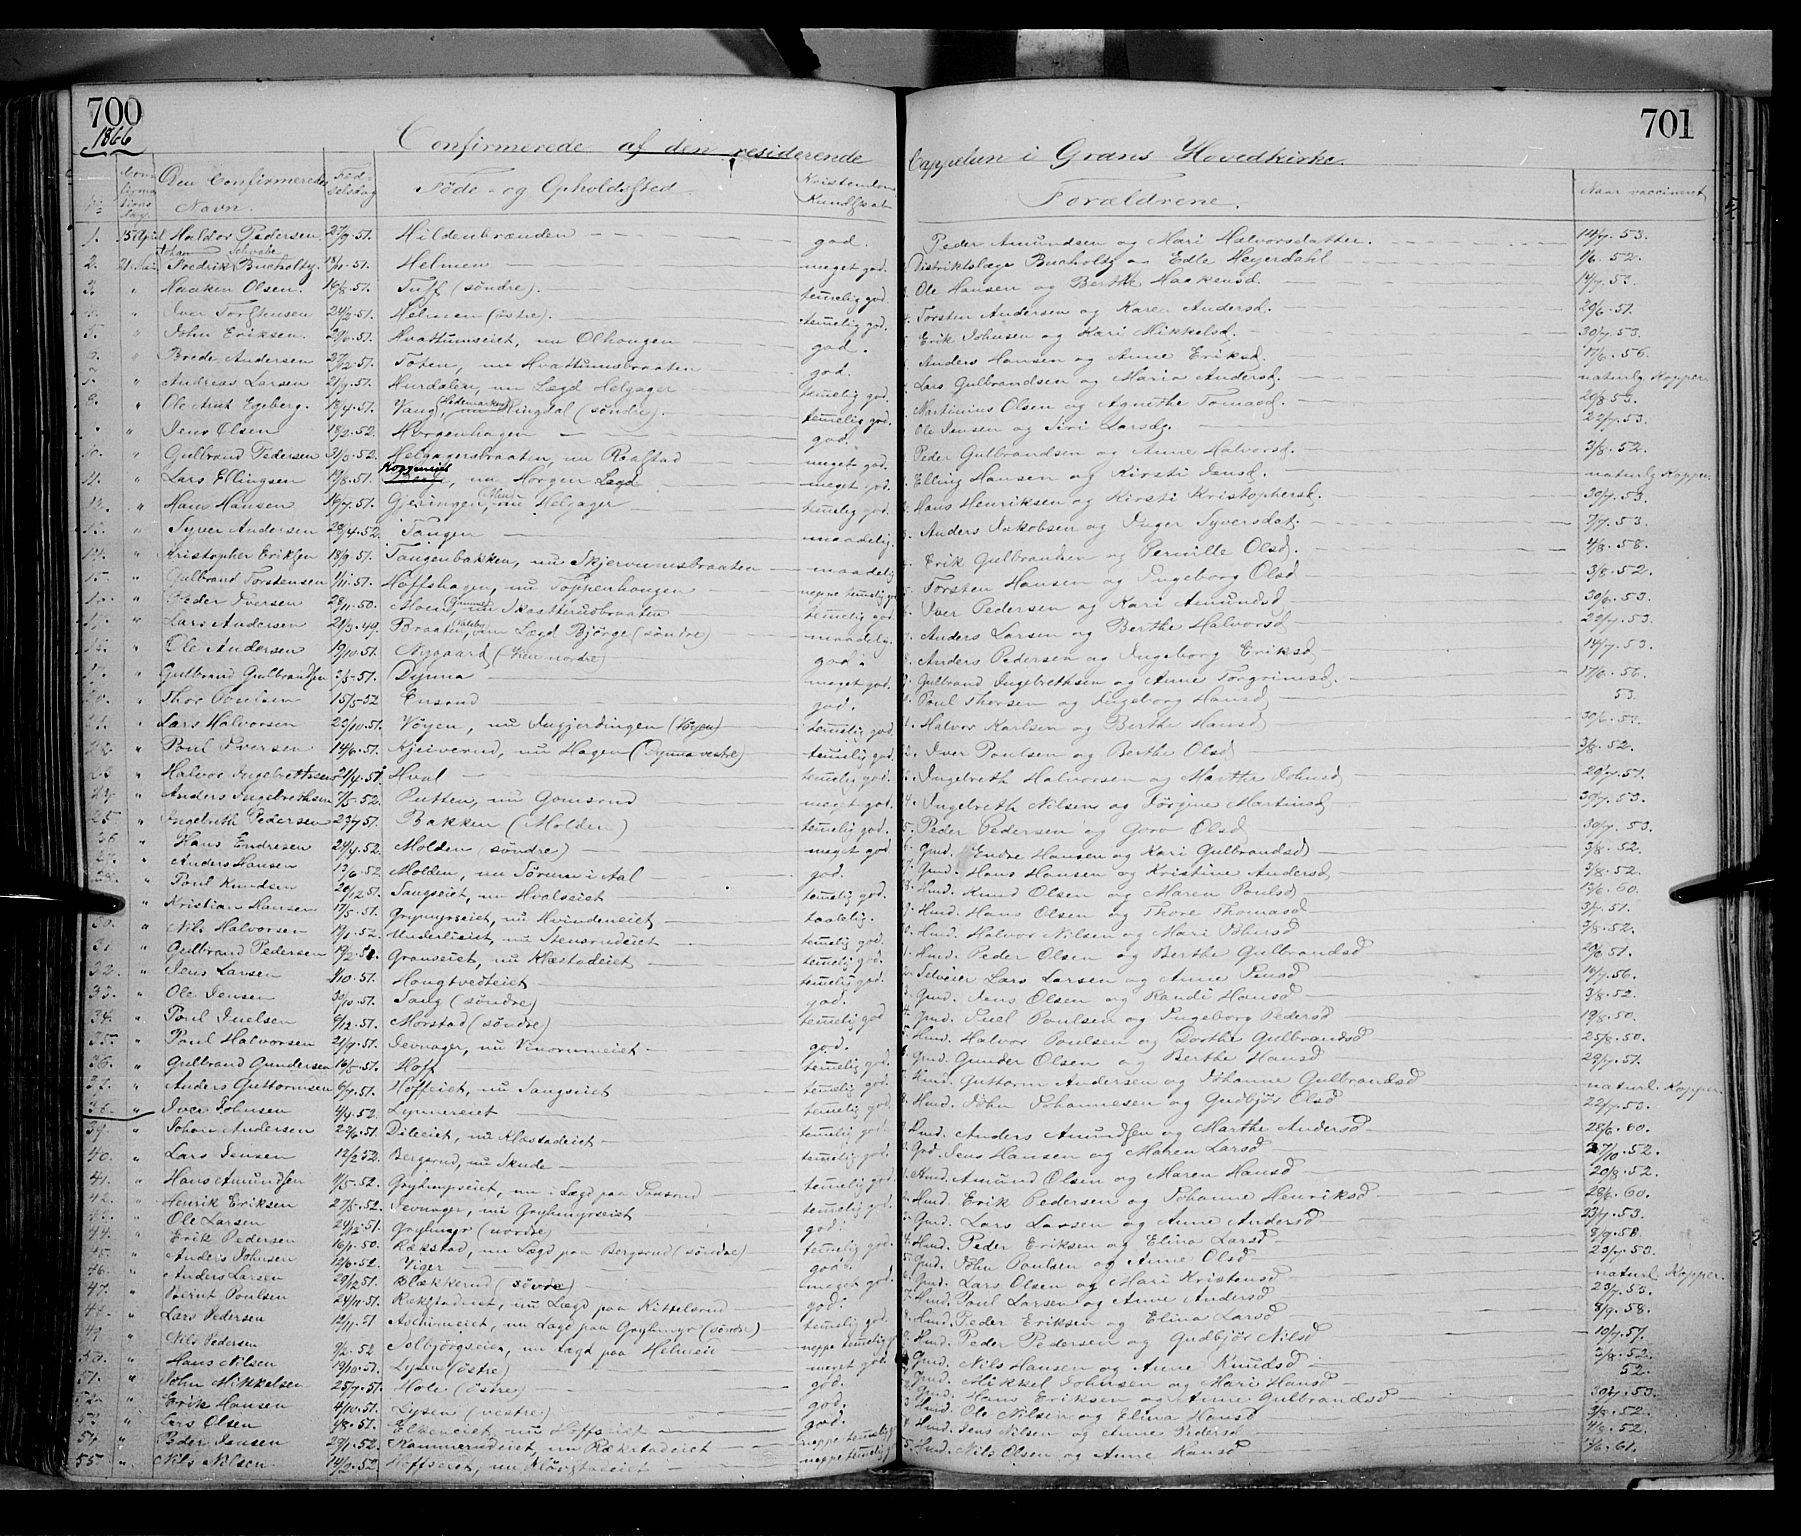 700
1866
701
Confirmerede af den residerende Cappelan i Grans Hovedkirke.
No
Confirmations dag.
Den Confirmeredes Navn.
Fødselsdag
Føde- og Opholdssted.
Kristendoms Kundskab
Forældrene.
Naar vaccineret
1. 15 April Haldor Pedersen 27/9.51. Hildenbrænden god. Peder Amundsen og Mari Halvorsdatter. 14/7.53.
2. Johan Fredrik Schwabe Bucholtz. 18/11.51. Helmen meget god. Distriktslæge Bucholtz og Edle Heyerdahl 1/6.52.
3. " Haaken Olsen. 16/8.51. Tuff (søndre). temelig god. Ole Hansen og Berthe Haakensd. 14/7.53.
" Iver Torstensen Helmen (østre). temelig god. 4. Torsten Andersen og Karen Andersd. 20/6.51.
5. " John Eriksen. Hvattumseiet, nu Olhaugen god. Erik Johnsen og Kari Mikkelsd. 30/7.53.
6. " Brede Andersen 27/2.51. Toten, nu Hvattumsbraaten god. Anders Hansen og Anne Eriksd. 17/6.56.
7. " Andreas Larsen 21/9.51. Hurdalen, nu Lægd Helgager temelig god. Lars Gulbrandsen og Maria Andersd. naturlg Kopper.
8. " Ole Amt Egeberg. 13/4.51. Vang, (Hedemarken) nu Ringdal (søndre). temelig god. Martinius Olsen og Agnethe Tomasd.
" " Jens Olsen 18/2.52. Horgenhagen god. Ole Jensen og Siri Larsd. 22/7.53.
10. " Gulbrand Pedersen Helgagersbraaten, nu Raastad meget god. Peder Gulbrandsen og Anne Halvorsd. 3/8.52.
11. " Lars Ellingsen , nu Horgen Lægd meget god. Elling Hansen og Kirsti Jensd. naturlg Kopper.
12. " Hans Hansen 16/7.51. Gjeringen, nu Helgager temelig god. Hans Henriksen og Kirsti Kristophersd. 30/7.53.
13. " Syver Andersen 28/4.52. Tangen maadelig. Anders Jakobsen og Inger Syversdat. 7/7.53.
14. " Kristopher Eriksen 18/9.51. Tangenbakken, nu Skjervumsbraaten maadelig Erik Gulbrandsen og Pernille Olsd. 4/8.58.
15. " Gulbrand Torstensen 1/11.51. Hoffshagen, nu Toppenhaugen neppe temelig god Torsten Hansen og Ingeborg Olsd 3/8.52.
" Peder Iversen 28/11.50. Moen, nu Skatterudbraaten temelig god. Iver Pedersen og Kari Amundsd. 30/6.53.
" Lars Andersen 21/3.49. Braaten, nu Lægd Bjørge (søndre) maadelig. 7. Anders Larsen og Berthe Halvorsd 22/7.53.
" Ole Andersen 19/10.51. Nygaard (Hen nordre) god. Anders Pedersen og Ingeborg Eriksd 14/7.53.
" Gulbrand Gulbrandsen 2/5.51. Dynna meget god. Gulbrand Ingebrethsen og Anne Torgrimsd. 17/6.56.
20. " Thor Poulsen 15/5.52 Ensrud god. Poul Thorsen og Ingeborg Hansd 53.
21. " Lars Halvorsen 23/10.51. Vøyen, nu Ingjerdingen (Vøyen) temelig god. Halvor Karlsen og Berthe Hansd 30/6.57.
22. " Poul Iversen 14/6.51. Kjeiverud, nu Hagen (Dynna vestre) temelig god. Iver Poulsen og Berthe Olsd 3/8.52.
23. " Halvor Ingebrethsen 21/4.51 Hval temelig god. Ingebreth Halvorsen og Marthe Johnsd. 29/7.51.
24. " Anders Ingebrethsen 7/5.52. Putten, nu Gomsrud meget god. 4. Ingebreth Nilsen og Jørgine Martinsd 30/7.53.
25. " Ingebreth Pedersen 23/7.51. Bakken (Molden) temelig god. 5. Peder Pedersen og Goro Olsd 30/7.53.
26. " Hans Endresen 24/4.52. Molden (søndre) meget god 6. Gmd. Endre Hansen og Kari Gulbrandsd 3/8.52.
27. " Anders Hansen 13/6.52. Molden, nu Sørum i Aal god. 7. Gmd. Hans Hansen og Kristine Andersd 3/8.52.
28. " Poul Knudsen 20/12.51. Sangseiet, nu Hvalseiet temelig god. 8. Hmd. Knud Olsen og Maren Poulsd 13/6.60.
" Kristian Hansen 17/5.51. Grymyrseiet, nu Hvindeneiet taalelig. 9. Hmd. Hans Olsen og Thore Thomasd 3/7.51.
30. " Nils Halvorsen 19/1.52. Underlieiet, nu Stensrudeiet temelig god. Hmd. Halvor Nilsen og Mari Johnsd 3/8.52.
31. " Gulbrand Pedersen Granseiet, nu Klæstadeiet temelig god. Hmd. Peder Olsen og Berthe Gulbrandsd
32. " Jens Larsen 1/10.51. Haugtvedteiet temelig god. Selveier Lars Larsen og Anne Jensd 16/7.56.
33. " Ole Jensen 30/10.51. Sang (søndre) god. Gmd. Jens Olsen og Randi Hansd 3/8.52.
34. " Poul Juelsen 9/12.51. Morstad (søndre) temelig god 4. Gmd. Juel Poulsen og Ingeborg Pedersd 19/8.50.
35. " Poul Halvorsen 21/9.51. Jevnager, nu Vinorumeiet god. Hmd. Halvor Poulsen og Dorthe Gulbrandsd 25/6.50.
36. " Gulbrand Gundersen 16/5.51. Hoff temelig god. Gmd. Gunder Olsen og Berthe Hansd 29/7.51.
37. " Anders Guttormsen 6/7.51. Hoffeiet, nu Sangseiet temelig god. Hmd. Guttorm Andersen og Johanne Gulbrandsd naturl. Kopper.
38. " Iver Johnsen 4/4.52. Lynnereiet temelig god. 8. Hmd. John Johannesen og Gudbjør Olsd 22/7.53.
39. " Johan Andersen 22/6.51. Dileeiet, nu Klæstadeiet temelig god. Hmd. Anders Amundsen og Marthe Andersd 28/6.60.
40. " Lars Jensen 12/2.52. Bergsrud, nu Skude temelig god. Gmd. Jens Hansen og Maren Larsd 27/10.52.
41. " Hans Amundsen 9/5.52. Gryhmyrseiet, nu i Lægd paa temelig god. Amund Olsen og Maren Hansd 20/8.52.
42. " Henrik Eriksen 27/5.52. Jevnager, nu Gryhmyrseiet temelig god. Hmd. Erik Pedersen og Johanne Henriksd 28/6.60.
43. " Ole Larsen 24/12.51. Gryhmyr (nordre) god. Gmd. Lars Larsen og Anne Andersd 23/7.53.
44. " Erik Pedersen 16/1.50. Rækstad, nu Lægd paa Bergsrud (søndre) temelig god. 4. Hmd. Peder Eriksen og Elina Larsd 9/9.58
45. " Anders Johnsen 12/6.52. Viger god. 5. Gmd. John Poulsen og Anne Olsd 23/7.53.
46. " Anders Larsen 29/12.51. Blækkerud (søvre) meget god. Gmd. Lars Olsen og Mari Kristensd naturl. Kopper.
47. " Bernt Poulsen 24/11.51. Rækstadeiet, nu Lægd paa Kittelsrud god. 7. Hmd. Poul Larsen og Anne Andersd 23/7.53.
48. " Lars Pedersen 12/1.51 Aschimeiet, nu Lægd paa Gryhmyr (søndre) temelig god. Hmd. Peder Eriksen og Elina Larsd 8/9.58.
49. " Nils Pedersen 9/2.52 Solbjørgseiet, nu Lægd paa Helmen neppe temelig g Hmd. Peder Pedersen og Gudbjør Nilsd 10/7.57.
50. " Hans Nilsen 19/10.51. Lysen (østre) meget god. Gmd. Nils Hansen og Anne Knudsd 3/8.52.
51. " John Mikkelsen 25/7.51. Hole (østre) god. Gmd. Mikkel Johnsen og Mari Hansd 52.
52. " Erik Hansen 4/10.51. Lysen (vestre) god. Gmd. Hans Eriksen og Anne Gulbrandsd 30/7.53.
53. " Lars Olsen 1/8.51. Elkeneiet, nu Hoffseiet god. Hmd. Ole Nilsen og Elina Hansd 3/8.52.
54. " Peder Jensen 29/1.52. Kammerudeiet nu Rækstadeiet neppe temelig g Hmd. Jens Nilsen og Anne Pedersd 4/8.52.
55. " Nils Nilsen 14/2.52 Hoffseiet, nu neppe temelig g 5. Hmd. Nils Olsen og Anne Hansd